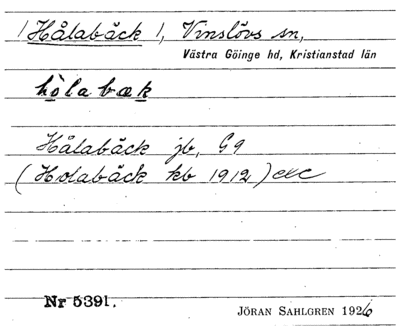 /Hålabäck/, Vinslövs sn,
Västra Göinge hd, Kristianstad län
hòlabæk
Hålabäck jb, G9
(Holabäck kb 1912)
Nr 5391.
JÖRAN SAHLGREN 1926